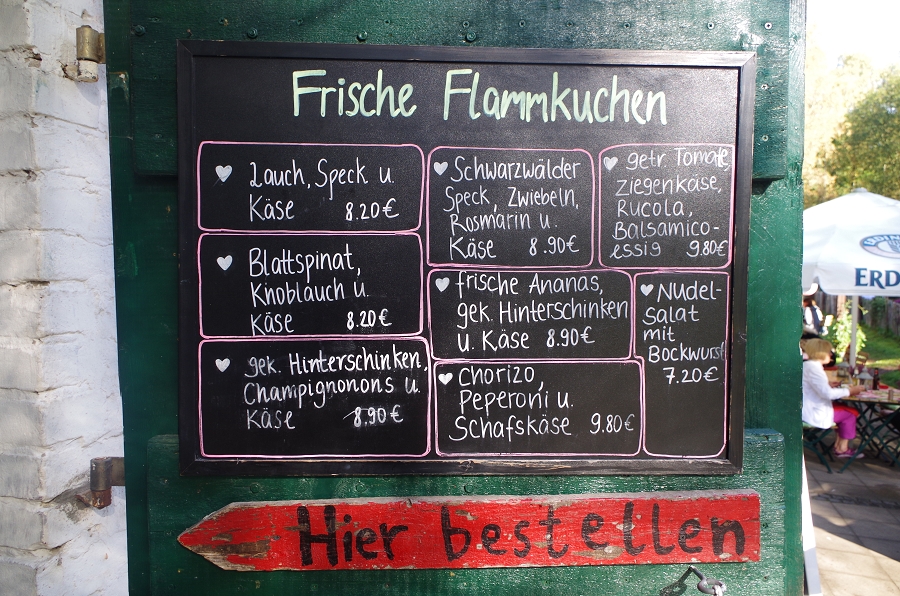 Frische Flammkuchen
Lauch, Speck u.
Käse 8.20€
Blattspinat,
Knoblauch u.
Käse 8.20€
gek. Hinterschinken,
Champignonons u.
Käse 8.90€
Schwarzwälder
Speck, Zwiebeln,
Rosmarin u.
Käse 8.90€
frische Ananas,
gek. Hinterschinken
u. Käse 8.90€
Chorizo,
Peperoni u.
Schafskäse 9.80€
getr. Tomate,
Ziegenkäse,
Rucola,
Balsamico-
essig 9.80€
Nudel-
salat
mit
Bockwurst
7.20€
Hier bestellen
ERD